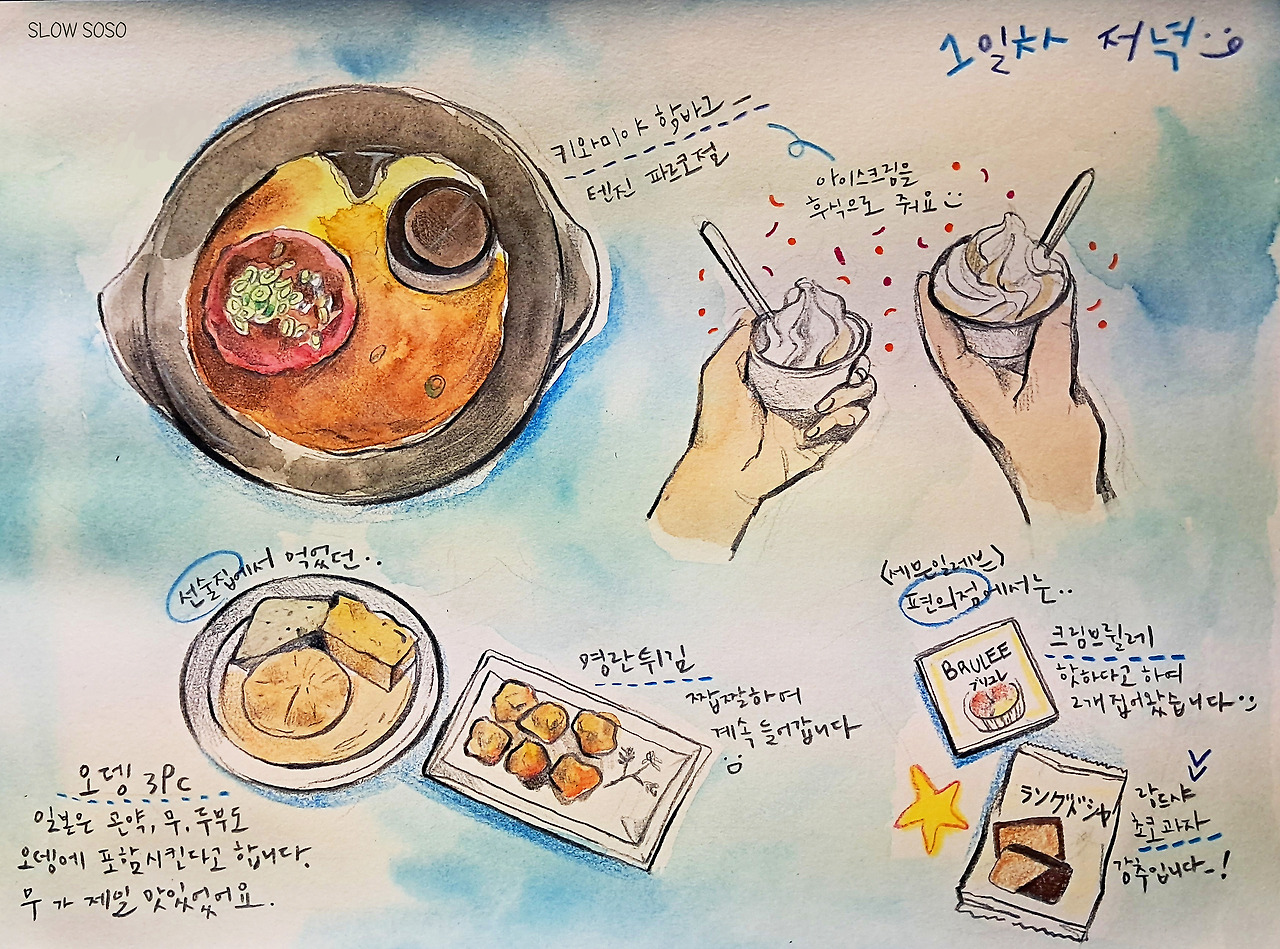 SLOW SOSO
1일차 저녁
키와미야 함바그
텐진 파르코점
아이스크림을
후식으로 줘요
선술집에서 먹었던..
오뎅 3Pc
일본은 곤약, 무, 두부도
오뎅에 포함시킨다고 합니다.
무가 제일 맛있었어요.
명란튀김
짭짤하여
계속 들어갑니다
<세븐일레븐>
편의점에서는..
BRULEE
크림브륄레
핫하다고 하여
2개 집어왔습니다
ラングドシャ
랑드샤
초콜과자
강추입니다~!